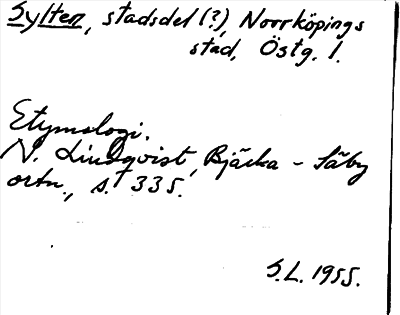 Sylten, stadsdel (?), Norrköpings
stad, Östg. l.
Etymologi.
N. Lindqvist, Bjärka - Säby
ortn., s. 335.
S.L. 1955.